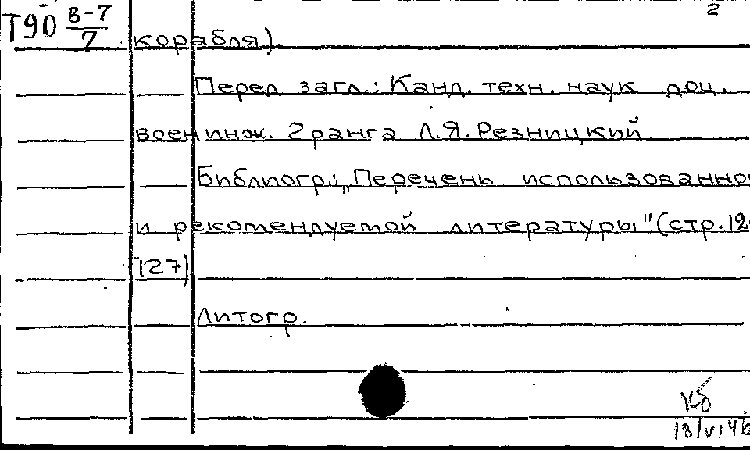 2
Т90 В-7/7
корабля).
Перед загл.: Канд. техн. наук доц.
воен инж. 2 ранга Л.Я. Резницкий
Библиогр.: „Перечень использованно
и рекомендуемой литературы" (стр. 12
127)
Литогр.
18/VI 46